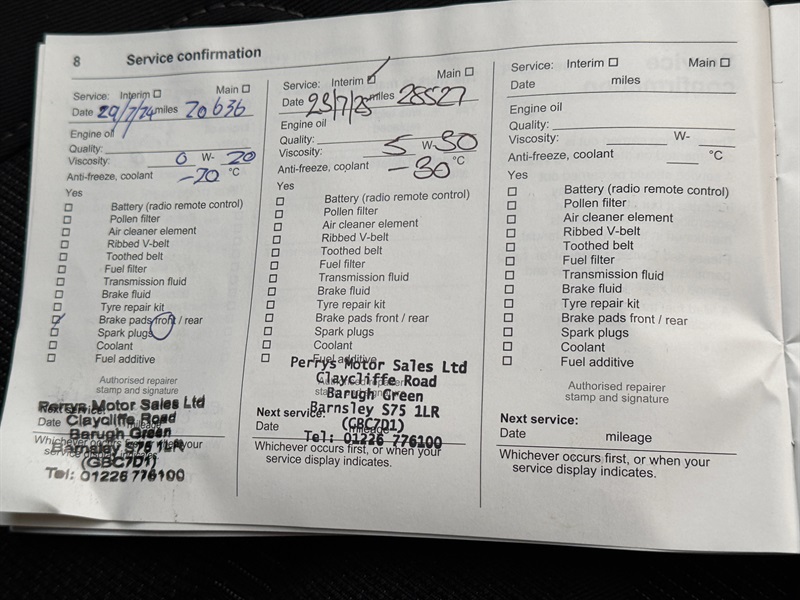 8 Service confirmation
Service: Interim Main
Date 29/7/24 miles 20636
Engine oil
Quality:
Viscosity: 0 W- 20
Anti-freeze, coolant -20 °C
Yes
Battery (radio remote control)
Pollen filter
Air cleaner element
Ribbed V-belt
Toothed belt
Fuel filter
Transmission fluid
Brake fluid
Tyre repair kit
Brake pads front / rear
Spark plugs
Coolant
Fuel additive
Authorised repairer
stamp and signature
Perrys Motor Sales Ltd
Next service:
Claycliffe Road
Date mileage
Barugh Green
Whichever occurs first, or when your
Barnsley S75 1LR
service display indicates.
(GBC7D1)
Tel: 01226 776100
Service: Interim Main
Date 23/7/25 miles 28527
Engine oil
Quality:
Viscosity: 5 W- 30
Anti-freeze, coolant -30 °C
Yes
Battery (radio remote control)
Pollen filter
Air cleaner element
Ribbed V-belt
Toothed belt
Fuel filter
Transmission fluid
Brake fluid
Tyre repair kit
Brake pads front / rear
Spark plugs
Coolant
Fuel additive
Perrys Motor Sales Ltd
Authorised repairer
Claycliffe Road
stamp and signature
Barugh Green
Next service:
Barnsley S75 1LR
Date mileage
(GBC7D1)
Tel: 01226 776100
Whichever occurs first, or when your
service display indicates.
Service: Interim Main
Date miles
Engine oil
Quality:
Viscosity: W-
Anti-freeze, coolant °C
Yes
Battery (radio remote control)
Pollen filter
Air cleaner element
Ribbed V-belt
Toothed belt
Fuel filter
Transmission fluid
Brake fluid
Tyre repair kit
Brake pads front / rear
Spark plugs
Coolant
Fuel additive
Authorised repairer
stamp and signature
Next service:
Date mileage
Whichever occurs first, or when your
service display indicates.